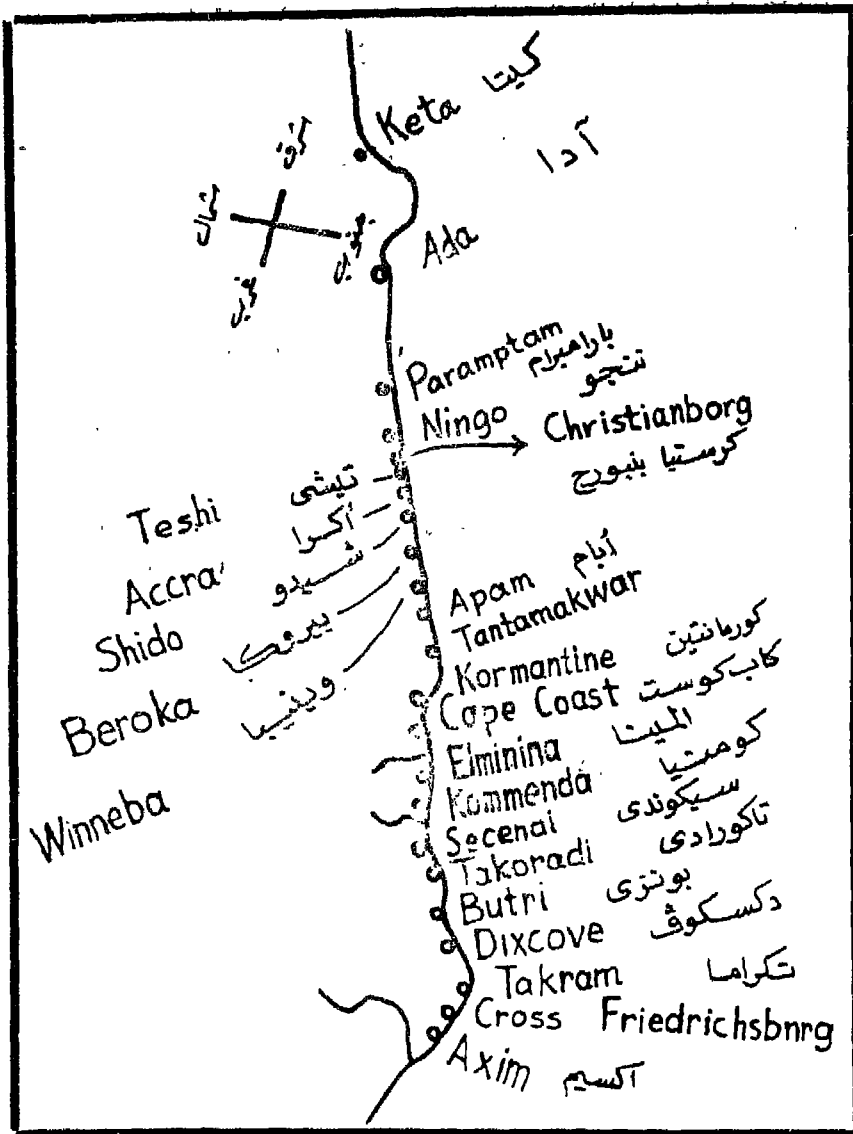 Keta كيتا
آدا
شرق
شمال
جنوب
غرب
Ada
Paramptam بارامبرام
Ningo ننجو
Christianborg
كرستيا بنبورج
Teshi تيشى
Accra أكرا
Shido شيدو
Beroka بيروكا
Winneba وينيبا
Apam أبام
Tantamakwar
Kormantine كورمانتين
Cape Coast كاب كوست
Elminina المينا
Kommenda كومنتيا
Secenai سيكوندى
Takoradi تاكورادى
Butri بونزى
Dixcove دكسكوڤ
Takram تكراما
Cross Friedrichsbnrg
Axim اكسيم